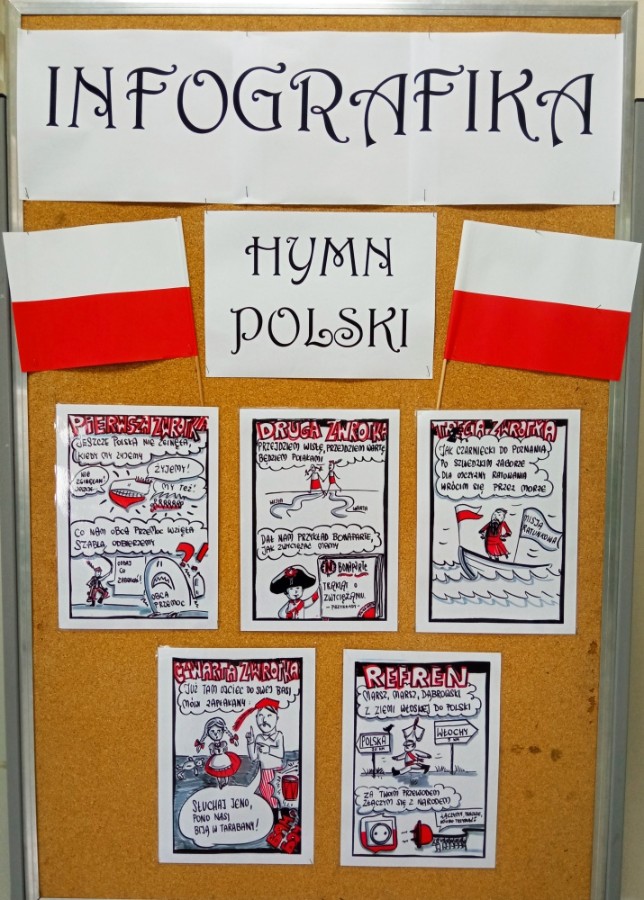 INFOGRAFIKA
HYMN
POLSKI
PIERWSZA ZWROTKA
JESZCZE POLSKA NIE ZGINĘŁA,
KIEDY MY ŻYJEMY
NIE
ZGINĘŁAM!
ŻYJEMY!
MY TEŻ!
CO NAM OBCA PRZEMOC WZIĘŁA
SZABLĄ ODBIERZEMY
ODDAJ
CO
OBCA
PRZEMOC
DRUGA ZWROTKA
PRZEJDZIEM WISŁĘ, PRZEJDZIEM WARTĘ,
BĘDZIEM POLAKAMI
WISŁA
WARTA
DAŁ NAM PRZYKŁAD BONAPARTE,
JAK ZWYCIĘŻAĆ MAMY
N BONAPARTE
TRAKTAT O
ZWYCIĘŻANIU
- PRZYKŁADY -
TRZECIA ZWROTKA
JAK CZARNIECKI DO POZNANIA
PO SZWEDZKIM ZABORZE
DLA OJCZYZNY RATOWANIA
WRÓCIM SIĘ PRZEZ MORZE
MISJA
RATUNKOWA!
CZWARTA ZWROTKA
JUŻ TAM OJCIEC DO SWEJ BASI
MÓWI ZAPŁAKANY
SŁUCHAJ JENO,
PONO NASI
BIJĄ W TARABANY!
REFREN
MARSZ, MARSZ, DĄBROWSKI
Z ZIEMI WŁOSKIEJ DO POLSKI
POLSKA
WŁOCHY
ZA TWOIM PRZEWODEM
ZŁĄCZYM SIĘ Z NARODEM